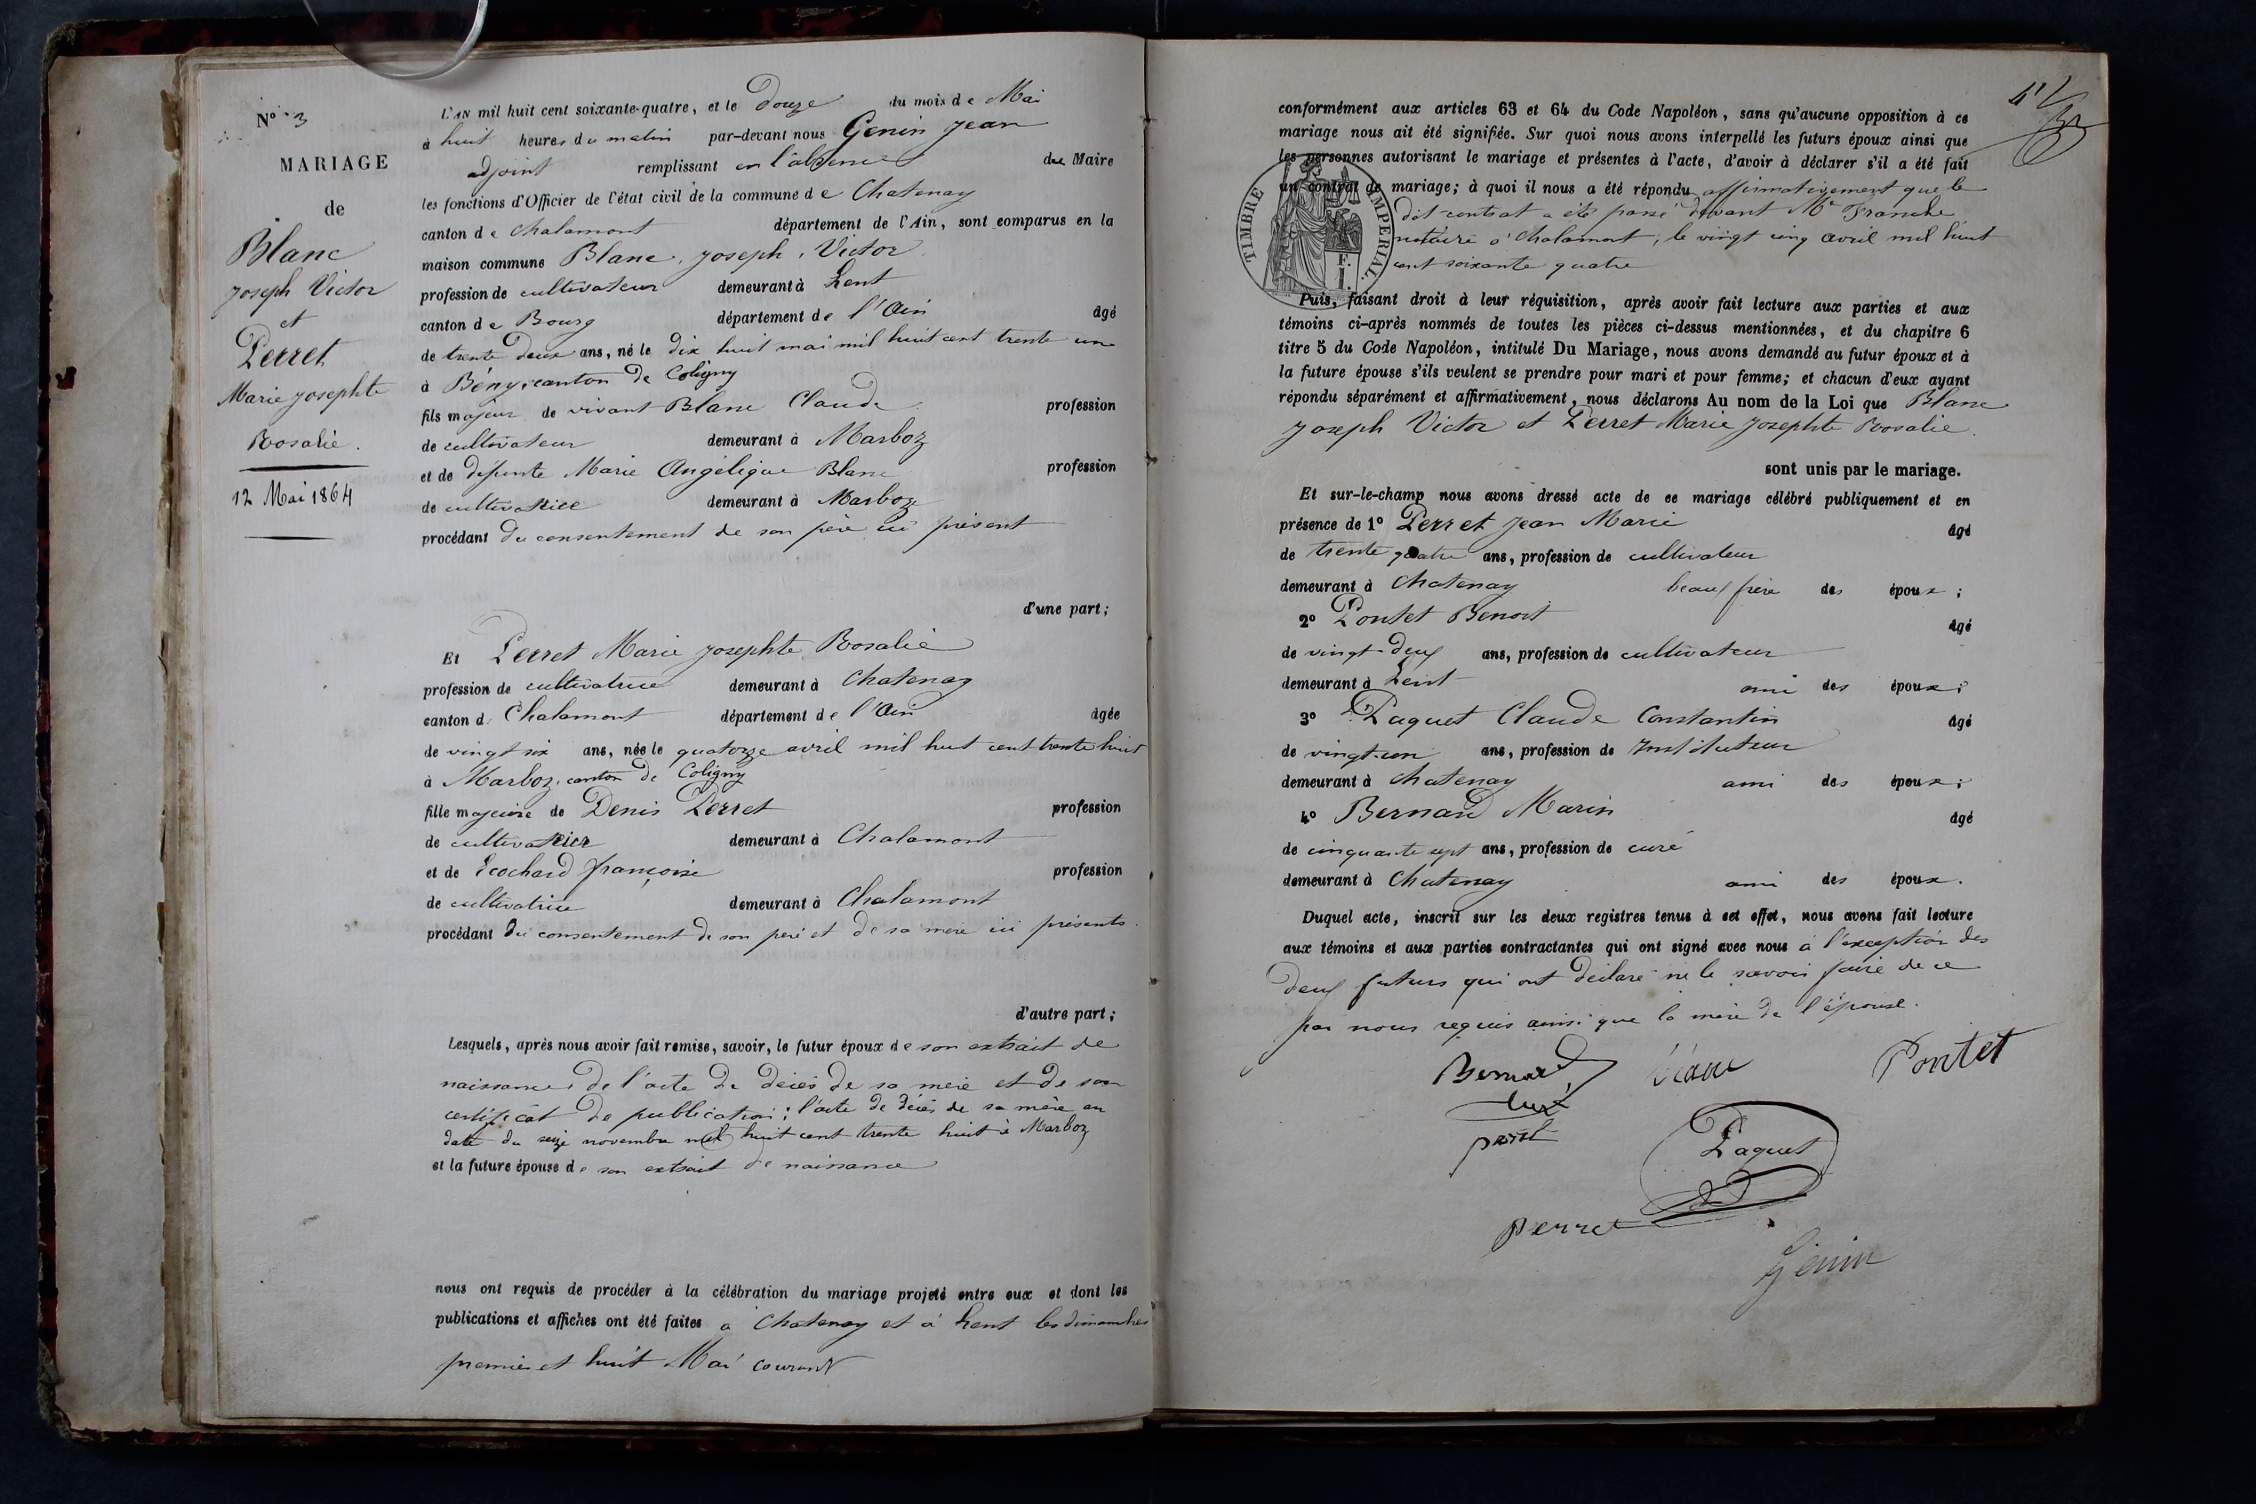 N° 3
MARIAGE
de
Blanc
Joseph Victor
et
Perret
Marie Josephte
Rosalie.
12 Mai 1864
L'AN mil huit cent soixante-quatre, et le Douze du mois de Mai
à huit heures du matin par-devant nous Genin Jean
adjoint remplissant en l'absence du Maire
les fonctions d'Officier de l'état civil de la commune de Chatenay
canton de Chalamont département de l'Ain, sont comparus en la
maison commune Blanc, Joseph, Victor
profession de cultivateur demeurant à Lent
canton de Bourg département de l'Ain âgé
de trente deux ans, né le dix huit mai mil huit cent trente un
à Bény, canton de Coligny
fils majeur de vivant Blanc Claude profession
de cultivateur demeurant à Marboz
et de défunte Marie Angélique Blanc profession
de cultivatrice demeurant à Marboz
procédant du consentement de son père ici présent
d'une part;
Et Perret Marie Josephte Rosalie
profession de cultivatrice demeurant à Chatenay
canton d. Chalamont département de l'Ain âgée
de vingt six ans, née le quatorze avril mil huit cent trente huit
à Marboz, canton de Coligny
fille majeure de Denis Perret profession
de demeurant à Chalamont
et de Ecochard françoise profession
de cultivatrice demeurant à Chalamont
procédant du consentement de son père et de sa mère ici présents.
d'autre part;
Lesquels, après nous avoir fait remise, savoir, le futur époux de son extrait de
naissance, de l'acte de décès de sa mère et de son
certificat de publication; l'acte de décès de sa mère en
date du seize novembre mil huit cent trente huit à Marboz
et la future épouse de son extrait de naissance
nous ont requis de procéder à la célébration du mariage projeté entre eux et dont les
publications et affiches ont été faites à Chatenay et à Lent les dimanches
premier et huit Mai courant
conformément aux articles 63 et 64 du Code Napoléon, sans qu'aucune opposition à ce
mariage nous ait été signifiée. Sur quoi nous avons interpellé les futurs époux ainsi que
les personnes autorisant le mariage et présentes à l'acte, d'avoir à déclarer s'il a été fait
un contrat de mariage; à quoi il nous a été répondu affirmativement que le
dit contrat a été passé devant Me Franche
notaire à Chalamont, le vingt cinq avril mil huit
cent soixante quatre
TIMBRE IMPERIAL.
Puis, faisant droit à leur réquisition, après avoir fait lecture aux parties et aux
témoins ci-après nommés de toutes les pièces ci-dessus mentionnées, et du chapitre 6
titre 5 du Code Napoléon, intitulé Du Mariage, nous avons demandé au futur époux et à
la future épouse s'ils veulent se prendre pour mari et pour femme; et chacun d'eux ayant
répondu séparément et affirmativement, nous déclarons Au nom de la Loi que Blanc
Joseph Victor et Perret Marie Josephte Rosalie.
sont unis par le mariage.
Et sur-le-champ nous avons dressé acte de ce mariage célébré publiquement et en
présence de 1° Perret Jean Marie âgé
de trente quatre ans, profession de cultivateur
demeurant à Chatenay beau frère des époux;
2° Pontet Benoit âgé
de vingt-deux ans, profession de cultivateur
demeurant à Lent ami des époux;
3° Paquet Claude Constantin âgé
de vingt-un ans, profession de Instituteur
demeurant à Chatenay ami des époux;
4° Bernard Marin âgé
de cinquante sept ans, profession de curé
demeurant à Chatenay ami des époux.
Duquel acte, inscrit sur les deux registres tenus à cet effet, nous avons fait lecture
aux témoins et aux parties contractantes qui ont signé avec nous à l'exception des
deux futurs qui ont déclaré ne le savoir faire de ce
par nous requis ainsi que la mère de l'épouse.
Bernard Blanc Pontet
curé
Paquet
Perret
Genin